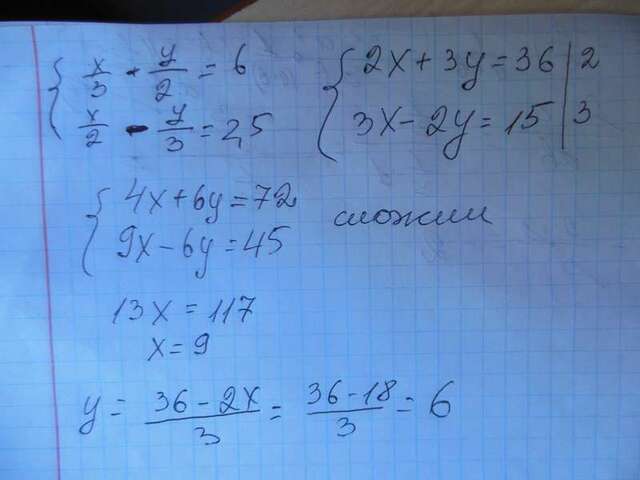 { x/3 - y/2 = 6
x/2 - y/3 = 2,5
{ 2x + 3y = 36 | 2
3x - 2y = 15 | 3
{ 4x + 6y = 72
9x - 6y = 45
сложим
13x = 117
x = 9
y = (36 - 2x)/3 = (36 - 18)/3 = 6